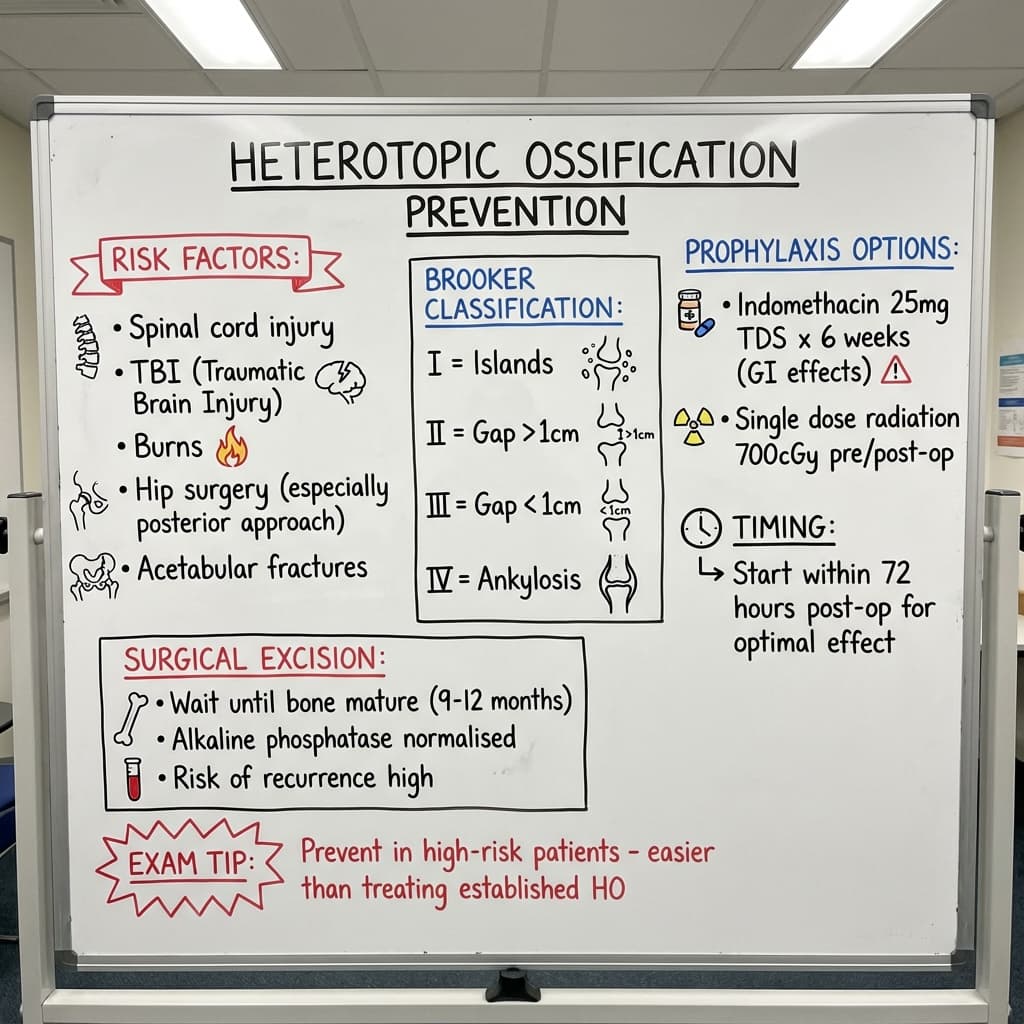 HETEROTOPIC OSSIFICATION
PREVENTION
RISK FACTORS:
• Spinal cord injury
• TBI (Traumatic
Brain Injury)
• Burns
• Hip surgery (especially
posterior approach)
• Acetabular fractures
BROOKER
CLASSIFICATION:
I = Islands
II = Gap >1cm
>1cm
III = Gap <1cm
<1cm
IV = Ankylosis
PROPHYLAXIS OPTIONS:
• Indomethacin 25mg
TDS x 6 weeks
(GI effects)
• Single dose radiation
700cGy pre/post-op
TIMING:
↳ Start within 72
hours post-op for
optimal effect
SURGICAL EXCISION:
• Wait until bone mature (9-12 months)
• Alkaline phosphatase normalised
• Risk of recurrence high
EXAM TIP:
Prevent in high-risk patients - easier
than treating established HO